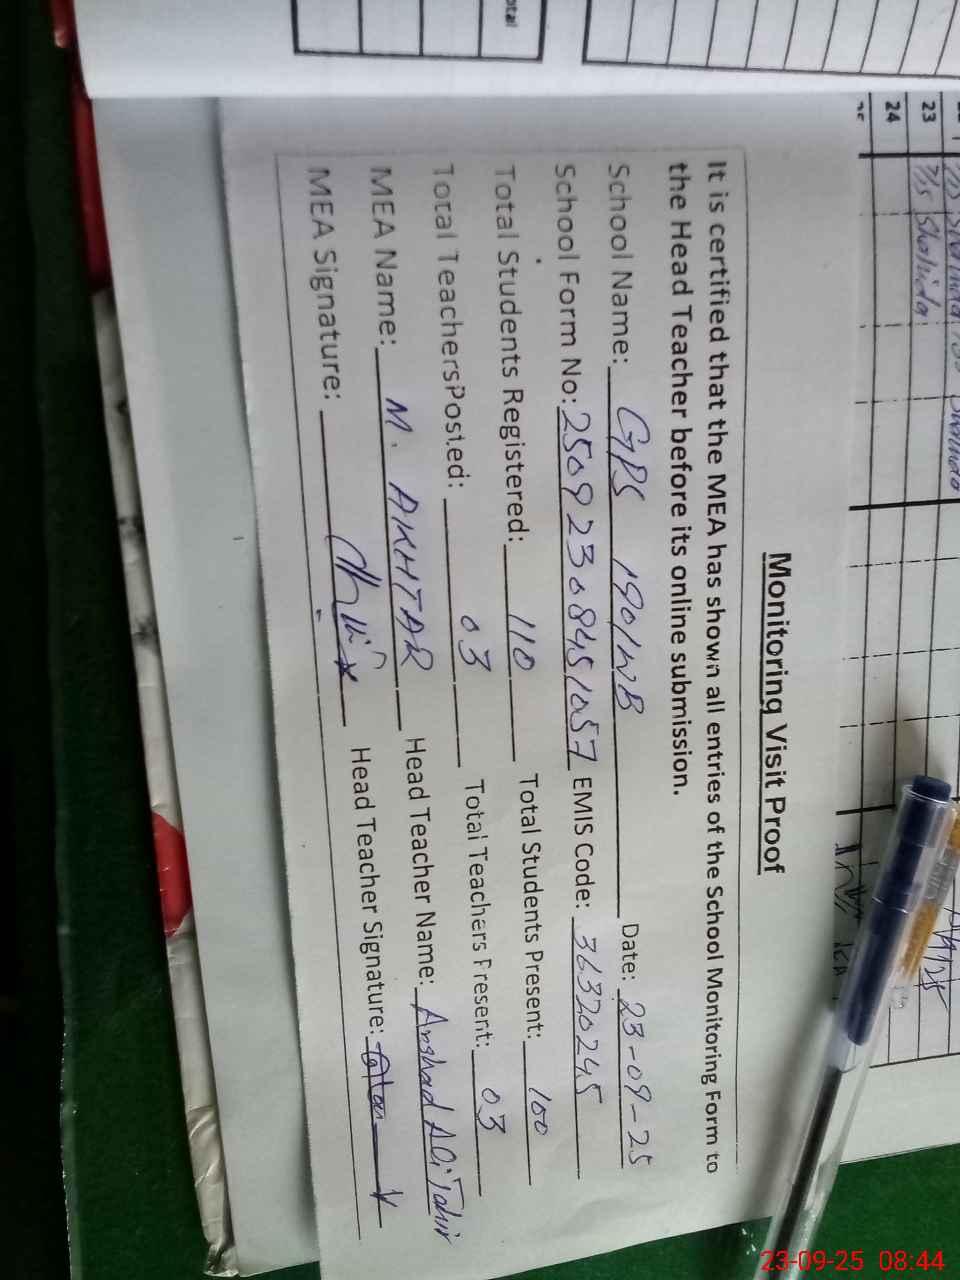 Monitoring Visit Proof
It is certified that the MEA has shown all entries of the School Monitoring Form to
the Head Teacher before its online submission.
School Name: GPS 190/WB Date: 23-09-25
School Form No: 25092308451057 EMIS Code: 36320245
Total Students Registered: 110 Total Students Present: 100
Total Teachers Posted: 03 Total Teachers Present: 03
MEA Name: M. AKHTAR Head Teacher Name: Arshad Ali Tahir
MEA Signature: Head Teacher Signature:
23 Shahida
24
otal
23-09-25 08:44